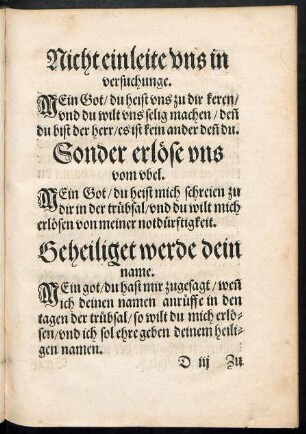 Nicht einleite vns in
versuchunge.
MEin Got/ du heist vns zu dir keren/
vnd du wilt vns selig machen/ deñ
du bist der herr/ es ist kein ander deñ du.
Sonder erlöse vns
vom vbel.
MEin Got/ du heist mich schreien zu
dir in der trübsal/ vnd du wilt mich
erlösen von meiner notdürftigkeit.
Geheiliget werde dein
name.
MEin got/ du hast mir zugesagt/ weñ
ich deinen namen anrüffe in den
tagen der trübsal/ so wilt du mich erlö⸗
sen/ vnd ich sol ehre geben deinem heili⸗
gen namen.
D iij Zu